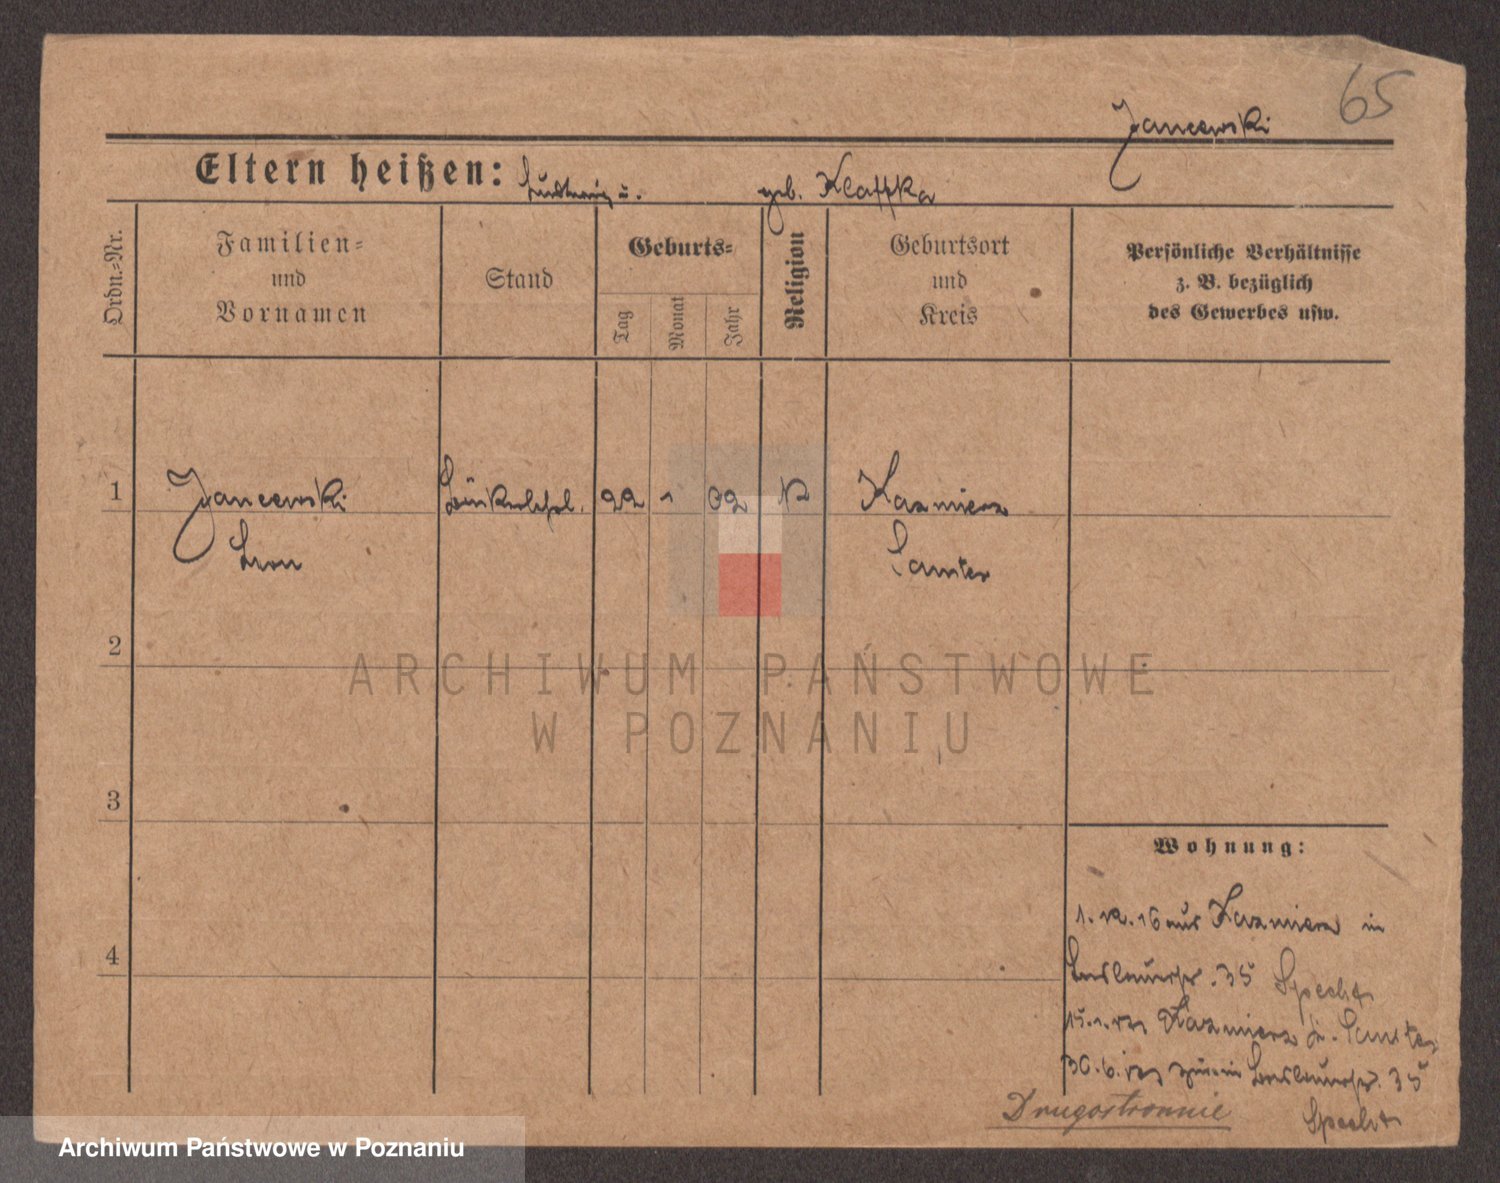 65
Janecwski
Eltern heißen: Ludwig u. geb. Klaffka
Ordn.=Nr.
Familien=
und
Vornamen
Stand
Geburts=
Tag
Monat
Jahr
Religion
Geburtsort
und
Kreis
Persönliche Verhältnisse
z. B. bezüglich
des Gewerbes usw.
1 Janecwski 22 1 02 K Kazmierz
Leon Samter
2
3
4
Wohnung:
1.12.16 aus Kazmierz in
35 Specht
15.1. Kazmierz Kr. Samter
30.6. 35
Specht
Drugostronnie
ARCHIWUM PAŃSTWOWE
W POZNANIU
Archiwum Państwowe w Poznaniu